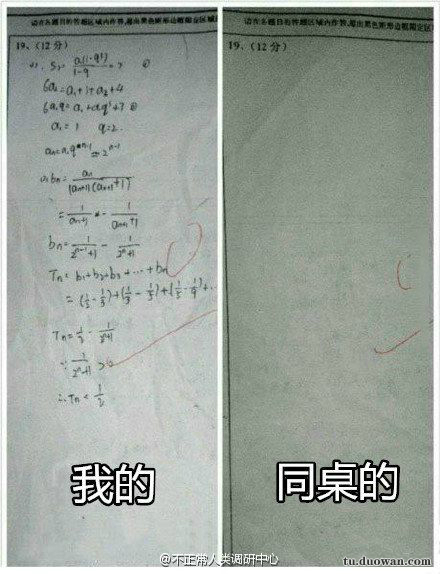 请在各题目的答题区域内作答,超出黑色矩形边框限定区域
19、(12分)
S₃ = a₁(1-q³)/(1-q) = 7 ①
6a₂ = a₁+3+a₃+4
6a₁q = a₁+a₁q²+7 ②
a₁ = 1 q=2.
aₙ=a₁qⁿ⁻¹=2ⁿ⁻¹
bₙ= aₙ/((aₙ+1)(aₙ₊₁+1))
= 1/(aₙ+1) - 1/(aₙ₊₁+1)
bₙ= 1/(2ⁿ⁻¹+1) - 1/(2ⁿ+1)
Tₙ= b₁+b₂+b₃+…+bₙ
= (1/2-1/3)+(1/3-1/5)+(1/5-1/9)+…
Tₙ=1/2-1/(2ⁿ+1)
∵1/(2ⁿ+1)>0
∴Tₙ<1/2
我的
请在各题目的答题区域内作答,超出黑色矩形边框限定区
19、(12分)
同桌的
@不正常人类调研中心
tu.duowan.com